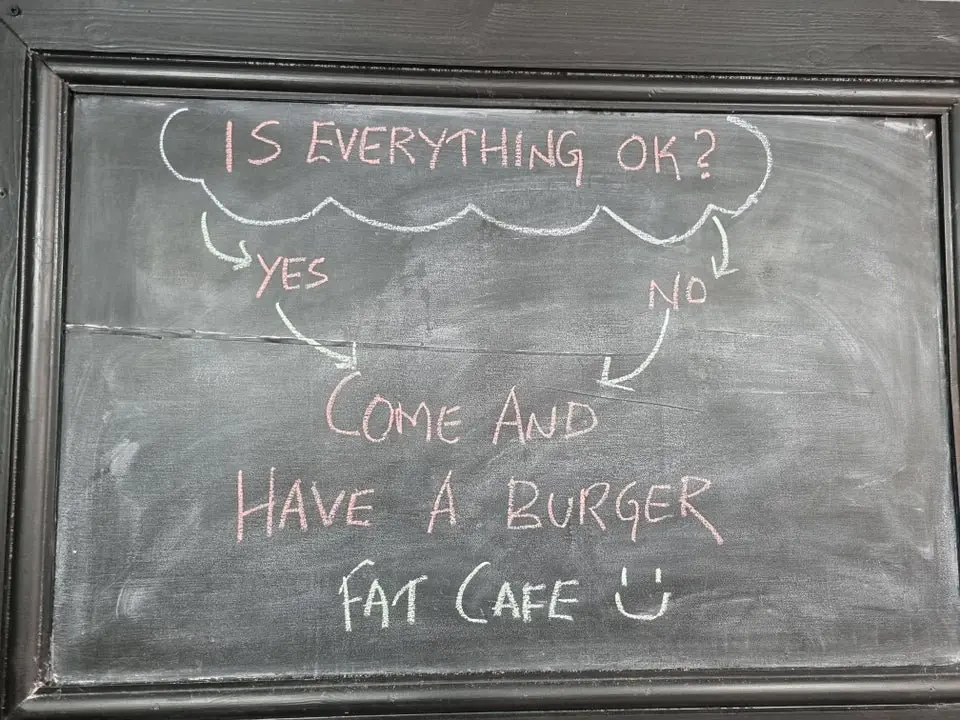 IS EVERYTHING OK?
YES
NO
COME AND
HAVE A BURGER
FAT CAFE